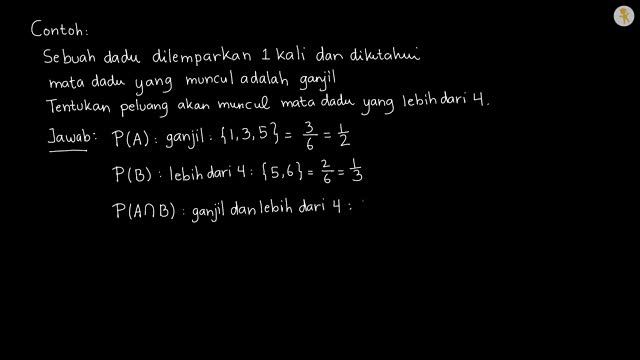 Contoh:
Sebuah dadu dilemparkan 1 kali dan diketahui
mata dadu yang muncul adalah ganjil
Tentukan peluang akan muncul mata dadu yang lebih dari 4.
Jawab: P(A) : ganjil : {1,3,5} = 3/6 = 1/2
P(B) : lebih dari 4 : {5,6} = 2/6 = 1/3
P(A∩B) : ganjil dan lebih dari 4 :